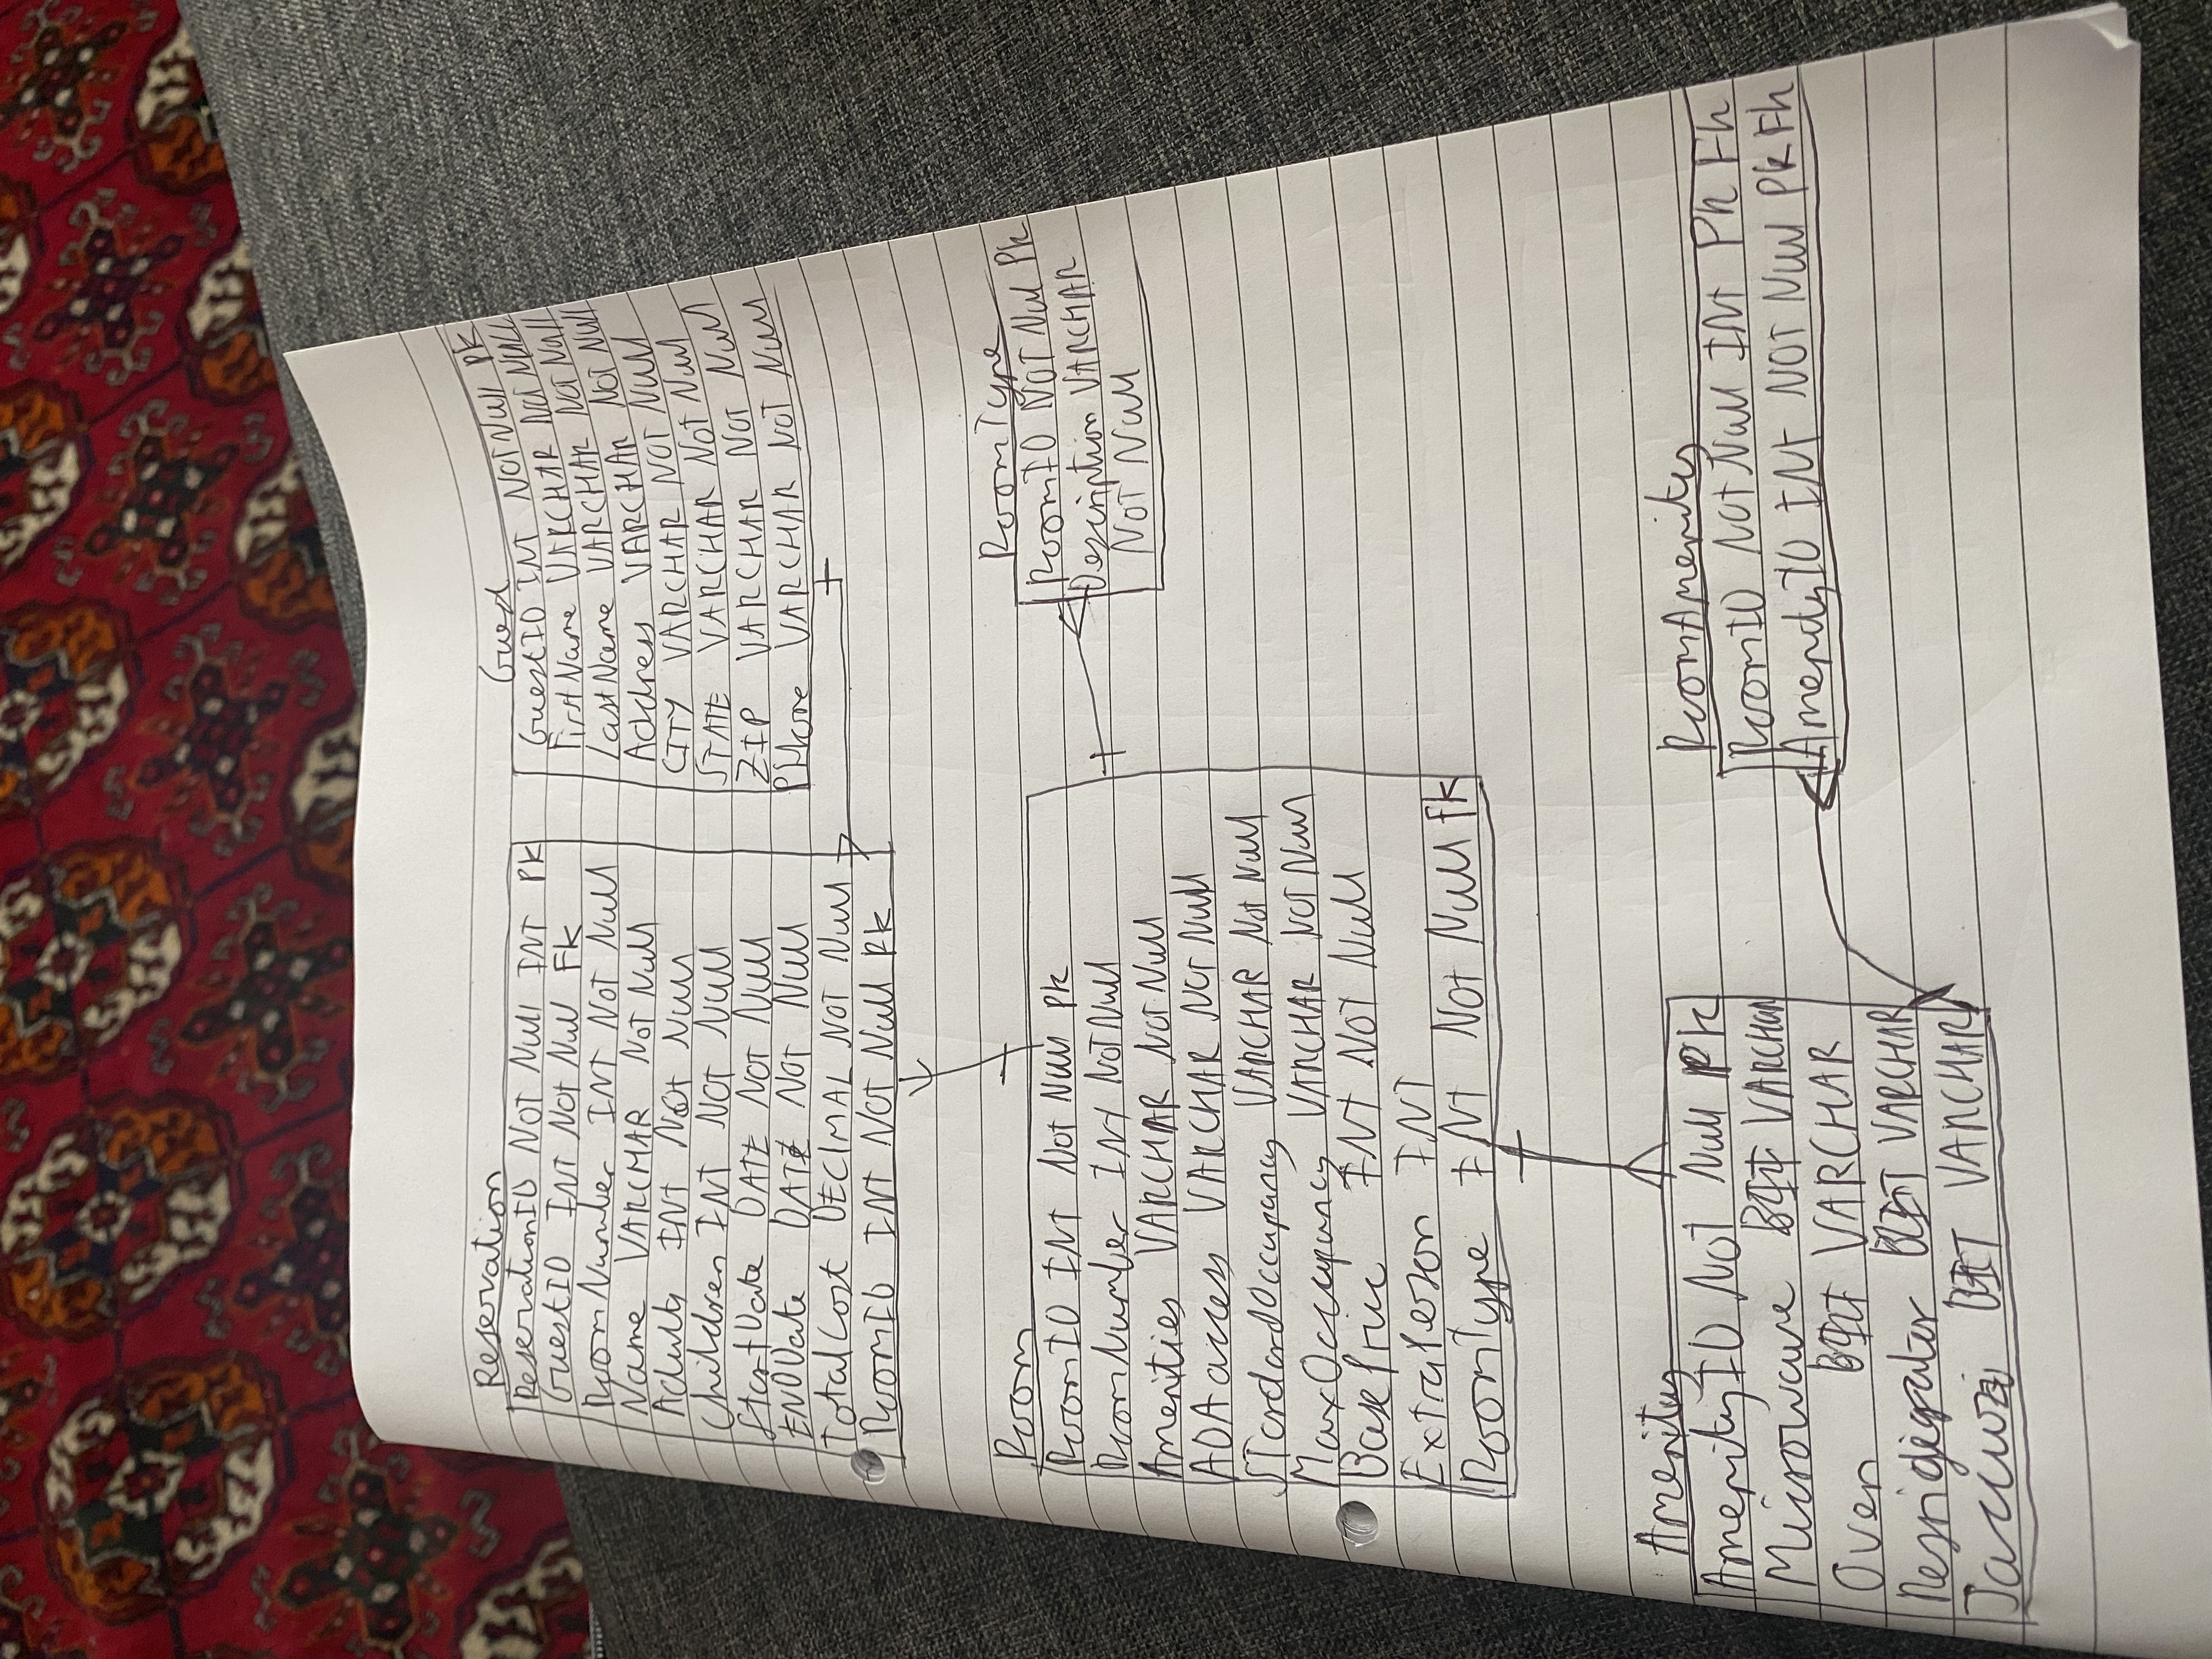 Reservation
ReservationID NOT Null INT Pk
GuestID INT Not Null Fk
RoomNumber INT Not Null
Name VARCHAR Not Null
Adults INT Not Null
Children INT NOT Null
StartDate DATE NOT Null
ENDDate DATE NOT Null
TotalCost DECIMAL NOT Null
RoomID INT NOT Null
Guest
GuestID INT NOT Null Pk
FirstName VARCHAR Not NULL
LastName VARCHAR NOT Null
Address VARCHAR NOT Null
CITY VARCHAR NOT Null
STATE VARCHAR Not Null
ZIP VARCHAR NOT Null
PHone VARCHAR NOT Null
Room
RoomID INT Not Null Pk
RoomNumber INT NOT Null
Amenities VARCHAR Not Null
ADA access VARCHAR Not Null
STandardOccupancy VARCHAR Not Null
MaxOccupancy VARCHAR NOT Null
BasePrice INT NOT Null
ExtraPerson INT
RoomType INT Not Null fk
RoomType
RoomID NOT Null Pk
Description VARCHAR
NOT Null
Amenity
AmenityID NOT Null PK
Microwave VARCHAR
Oven VARCHAR
VARCHAR
VARCHAR
RoomAmenity
RoomID Not Null INT Pk Fk
AmenityID INT NOT Null Pk Fk